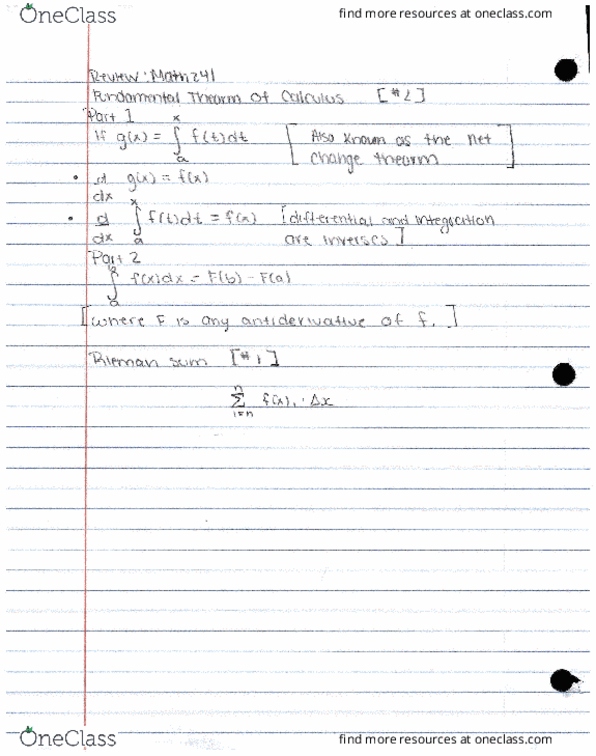 OneClass
find more resources at oneclass.com
Review: Math 241
Fundamental Theorm of Calculus [#2]
Part 1
If g(x) = ∫ₐˣ f(t)dt [Also known as the net
change theorm]
• d/dx g(x) = f(x)
• d/dx ∫ₐˣ f(t)dt = f(x) [differential and integration
are inverses]
Part 2
∫ₐᵇ f(x)dx = F(b) - F(a)
[where F is any antiderivative of f.]
Rieman sum [#1]
n
Σ f(x), · Δx
i=n
OneClass
find more resources at oneclass.com